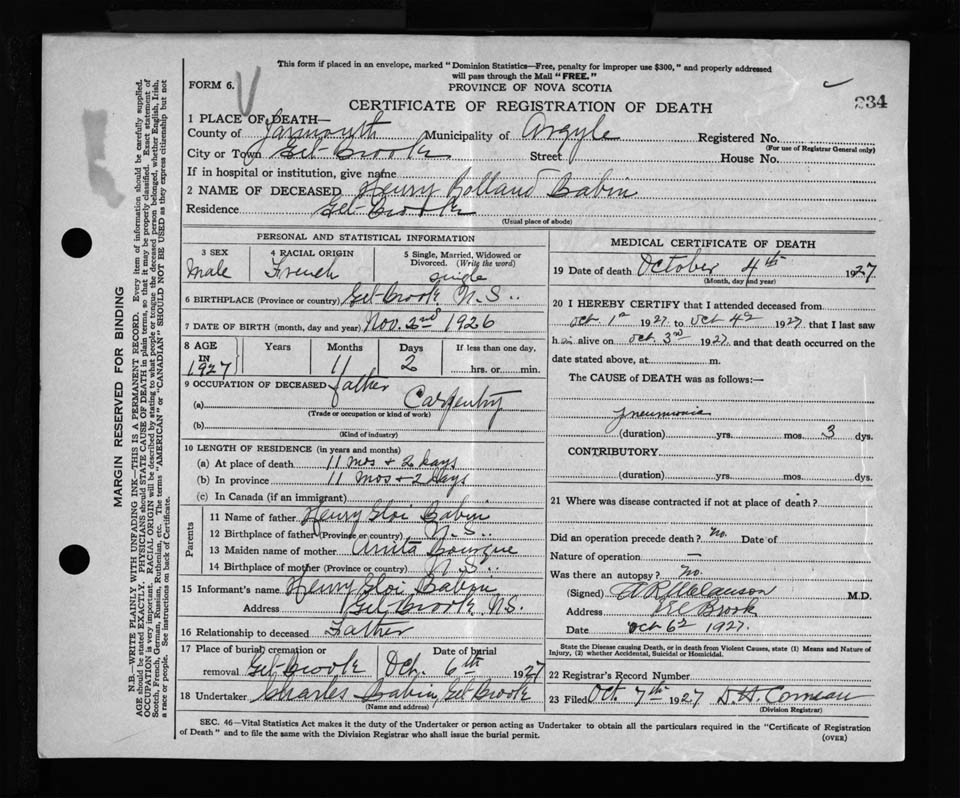 This form if placed in an envelope, marked "Dominion Statistics—Free, penalty for improper use $300," and properly addressed
will pass through the Mail "FREE."
FORM 6.
PROVINCE OF NOVA SCOTIA
CERTIFICATE OF REGISTRATION OF DEATH
234
1 PLACE OF DEATH—
County of Yarmouth Municipality of Argyle Registered No.
(For use of Registrar General only)
City or Town Eel-Brook Street House No.
If in hospital or institution, give name
2 NAME OF DECEASED Henry Rolland Babin
Residence Eel-Brook
(Usual place of abode)
PERSONAL AND STATISTICAL INFORMATION
3 SEX Male
4 RACIAL ORIGIN French
5 Single, Married, Widowed or Divorced. (Write the word) single
6 BIRTHPLACE (Province or country) Eel-Brook N.S.
7 DATE OF BIRTH (month, day and year) Nov. 2nd 1926
8 AGE IN 1927 Years Months 11 Days 2 If less than one day, hrs. or min.
9 OCCUPATION OF DECEASED father
(a) Carpentry
(Trade or occupation or kind of work)
(b)
(Kind of industry)
10 LENGTH OF RESIDENCE (in years and months)
(a) At place of death 11 mos + 2 days
(b) In province 11 mos + 2 days
(c) In Canada (if an immigrant)
Parents
11 Name of father Henry Eloi Babin
12 Birthplace of father (Province or country) N.S.
13 Maiden name of mother Anita Bourque
14 Birthplace of mother (Province or country) N.S.
15 Informant's name Henry Eloi Babin
Address Eel-Brook N.S.
16 Relationship to deceased Father
17 Place of burial, cremation or removal Eel-Brook Date of burial Oct. 6th 1927
18 Undertaker Charles Babin, Eel-Brook
(Name and address)
MEDICAL CERTIFICATE OF DEATH
19 Date of death October 4th 1927
(Month, day and year)
20 I HEREBY CERTIFY that I attended deceased from
Oct 1st 1927 to Oct 4th 1927 that I last saw
him alive on Oct 3rd 1927 and that death occurred on the
date stated above, at m.
The CAUSE of DEATH was as follows:—
Pneumonia
(duration) yrs. mos. 3 dys.
CONTRIBUTORY
(duration) yrs. mos. dys.
21 Where was disease contracted if not at place of death?
Did an operation precede death? No. Date of
Nature of operation —
Was there an autopsy? no.
(Signed) M.D.
Address Eel Brook
Date Oct 6th 1927.
State the Disease causing Death, or in death from Violent Causes, state (1) Means and Nature of
Injury, (2) whether Accidental, Suicidal or Homicidal.
22 Registrar's Record Number
23 Filed Oct 7th 1927 D.H. Comeau
(Division Registrar)
SEC. 46—Vital Statistics Act makes it the duty of the Undertaker or person acting as Undertaker to obtain all the particulars required in the "Certificate of Registration
of Death" and to file the same with the Division Registrar who shall issue the burial permit.
(OVER)
MARGIN RESERVED FOR BINDING
N.B.—WRITE PLAINLY WITH UNFADING INK—THIS IS A PERMANENT RECORD. Every item of information should be carefully supplied.
AGE should be stated EXACTLY. PHYSICIANS should STATE CAUSE OF DEATH in plain terms, so that it may be properly classified. Exact statement of
OCCUPATION is very important. RACIAL ORIGIN will be described by stating to what people or tongue the deceased person belonged, whether English, Irish,
Scotch, French, German, Russian, Ruthenian, etc. The terms "AMERICAN" or "CANADIAN" SHOULD NOT BE USED as they express citizenship but not
a race or people. See instructions on back of Certificate.